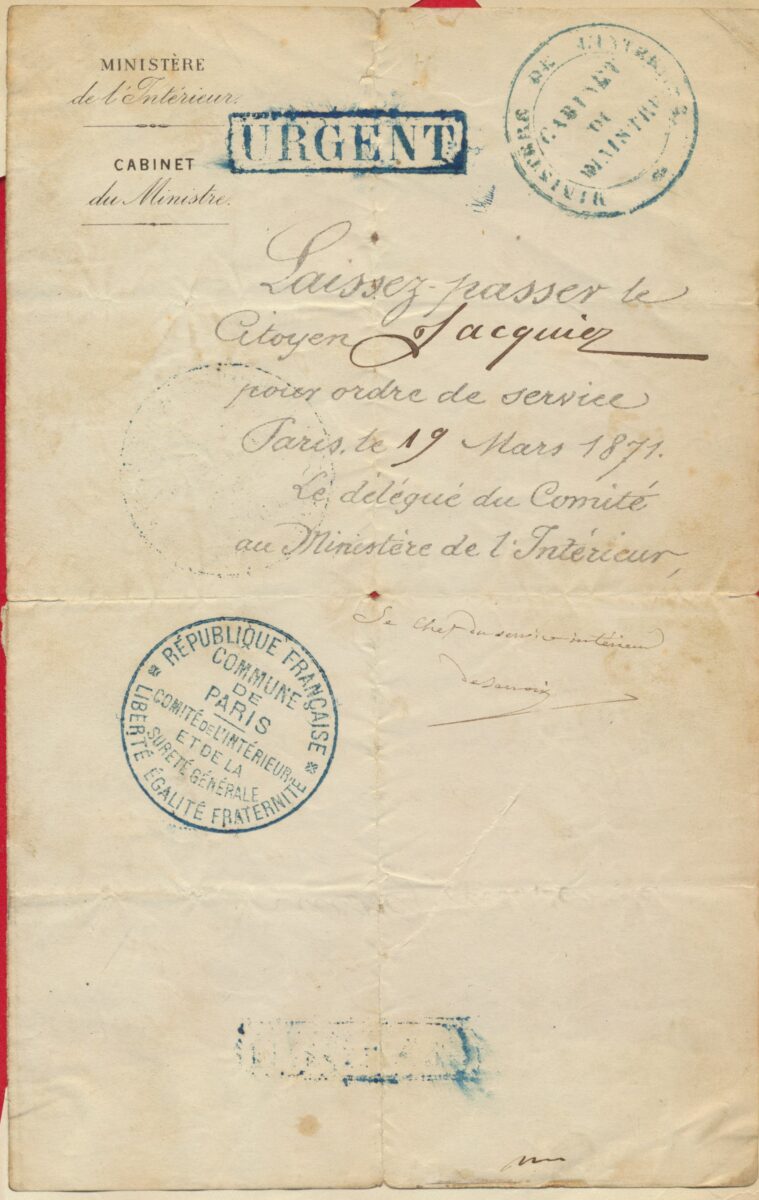 MINISTÈRE
de l'Intérieur.
CABINET
du Ministre.
URGENT
MINISTÈRE DE L'INTÉRIEUR
CABINET
DU
MINISTRE
Laissez-passer le
Citoyen Jacquiez
pour ordre de service
Paris, le 19 Mars 1871.
Le délégué du Comité
au Ministère de l'Intérieur,
Le Chef du service intérieur
RÉPUBLIQUE FRANÇAISE
COMMUNE
DE
PARIS
COMITÉ DE L'INTÉRIEUR
ET DE LA
SURETÉ GÉNÉRALE
LIBERTÉ ÉGALITÉ FRATERNITÉ